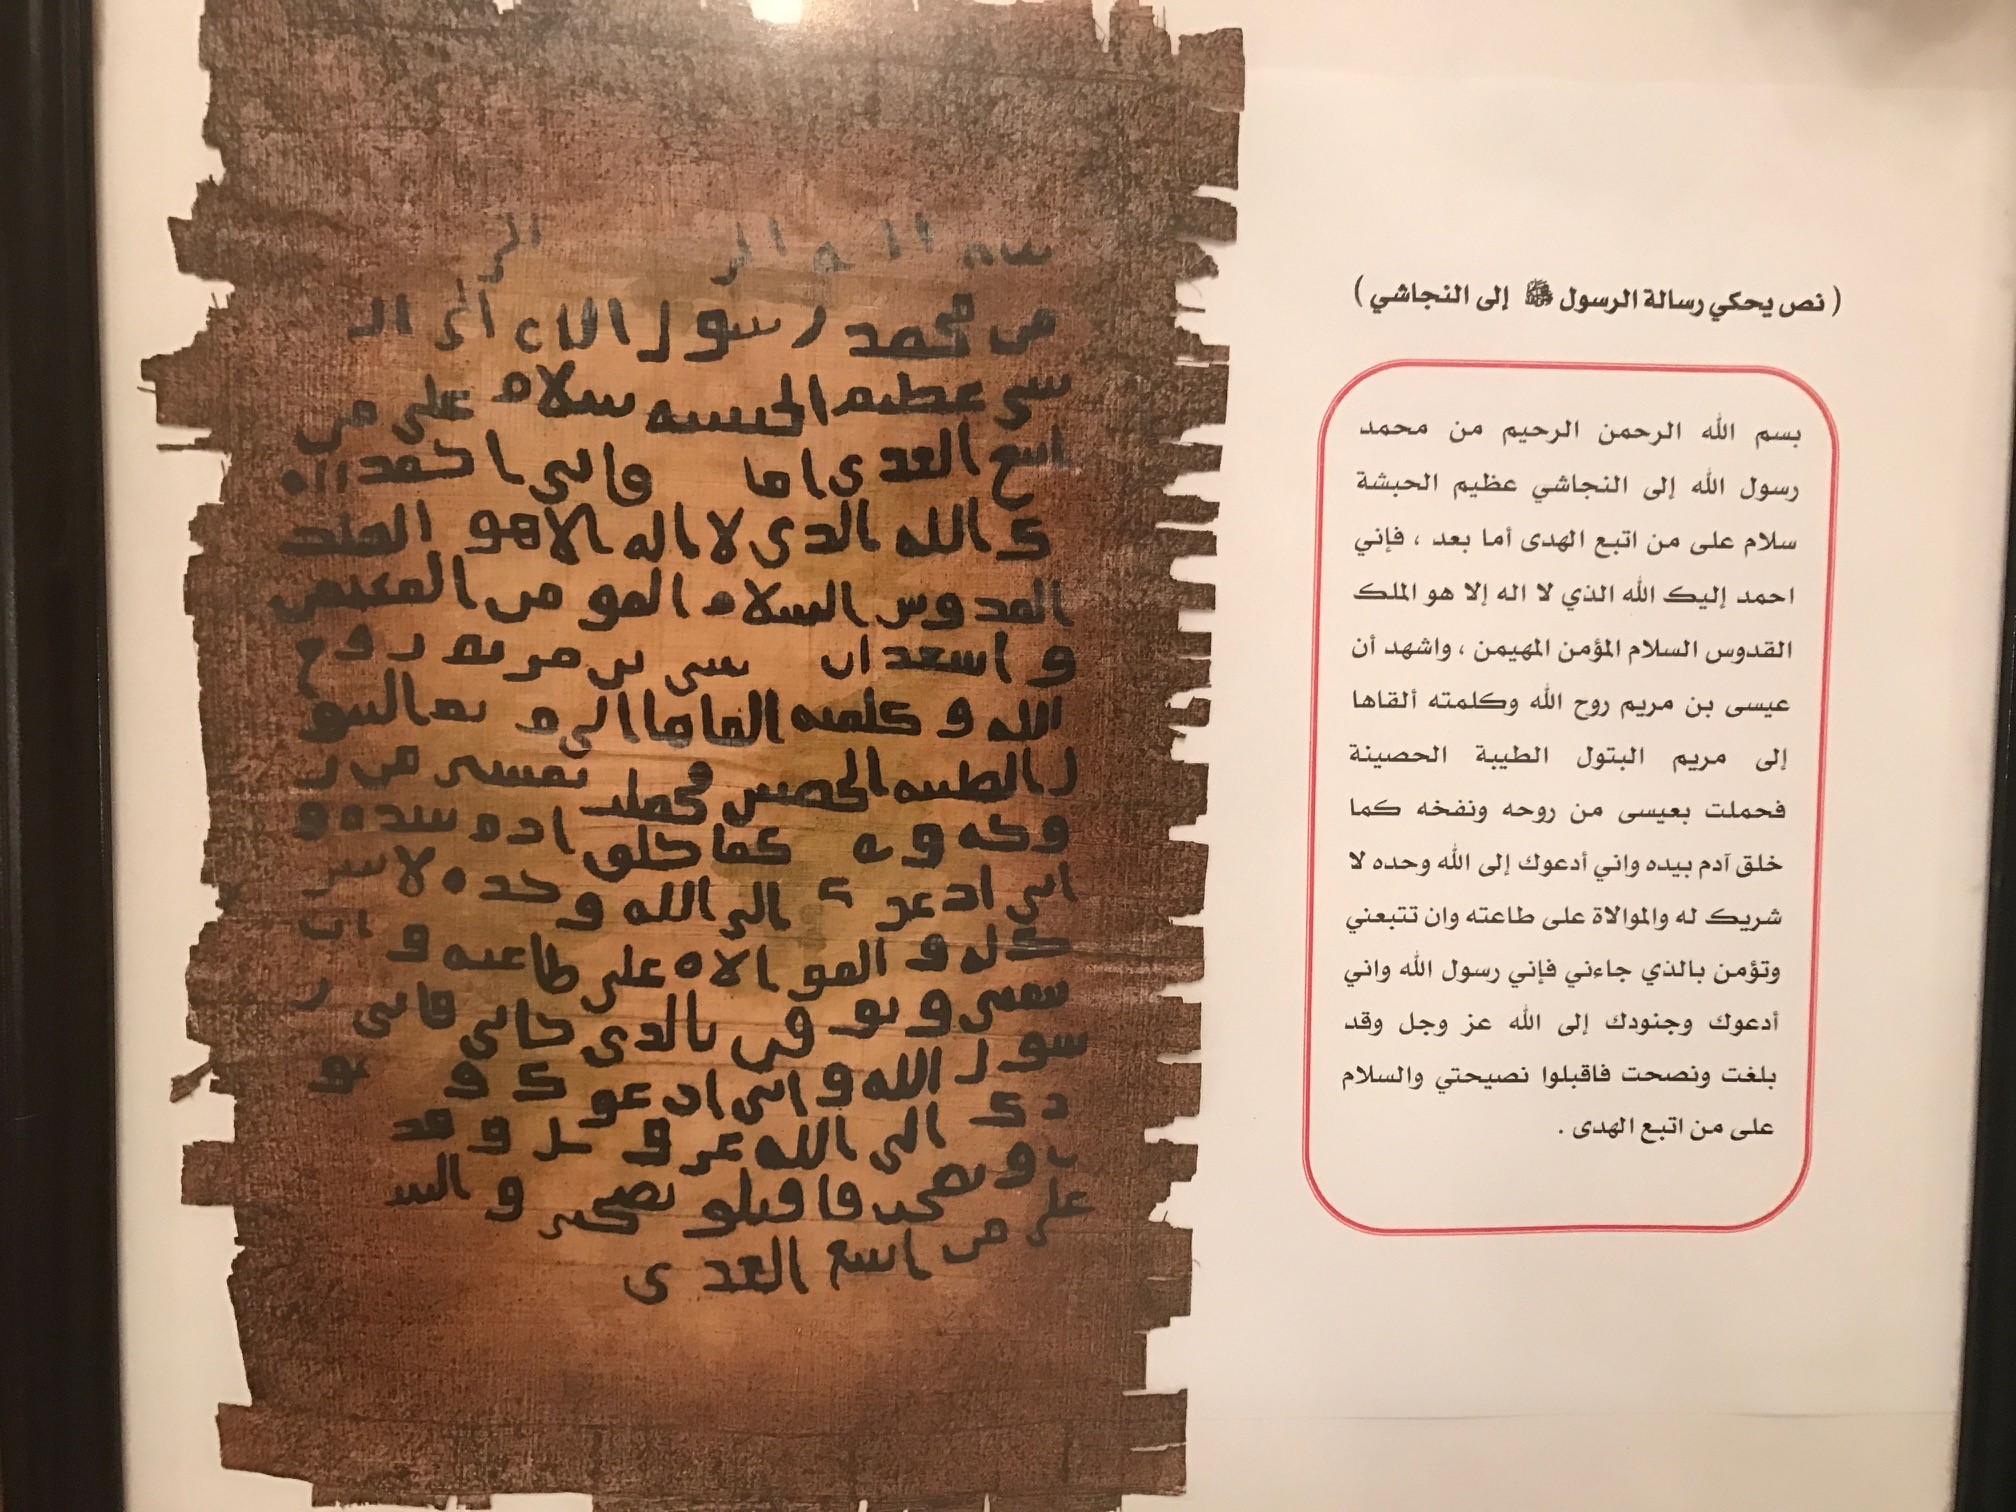 سم الله الر الر
من محمد رسول الله الى الد
سى عظيم الحبسه سلام على من
اسع العدى اما فانى احمد ال
ك الله الدى لا اله الا هو الملك
العدوس السلام المومن المعيمن
واسعد ان سى بن مريم روح
الله وكلمته العاها الى م يم البتو
ل الطيبه الحصينه فحملت بعيسى من ر
وحه و ه كما خلق ادم بيده و
انى ادعو ك الى الله وحده لا سر
ك له والمو الاه على طاعته و ان
تتبعنى وتو من بالدى جانى فانى ر
سول الله وانى ادعوك و نو
دك الى الله عز و جل و قد
ب ونصحت فاقبلو نصيحتى والسلا
على من اتبع العدى
( نص يحكي رسالة الرسول ﷺ إلى النجاشي )
بسم الله الرحمن الرحيم من محمد
رسول الله إلى النجاشي عظيم الحبشة
سلام على من اتبع الهدى أما بعد ، فإني
احمد إليك الله الذي لا اله إلا هو الملك
القدوس السلام المؤمن المهيمن ، واشهد أن
عيسى بن مريم روح الله وكلمته ألقاها
إلى مريم البتول الطيبة الحصينة
فحملت بعيسى من روحه ونفخه كما
خلق آدم بيده واني أدعوك إلى الله وحده لا
شريك له والموالاة على طاعته وان تتبعني
وتؤمن بالذي جاءني فإني رسول الله واني
أدعوك وجنودك إلى الله عز وجل وقد
بلغت ونصحت فاقبلوا نصيحتي والسلام
على من اتبع الهدى .